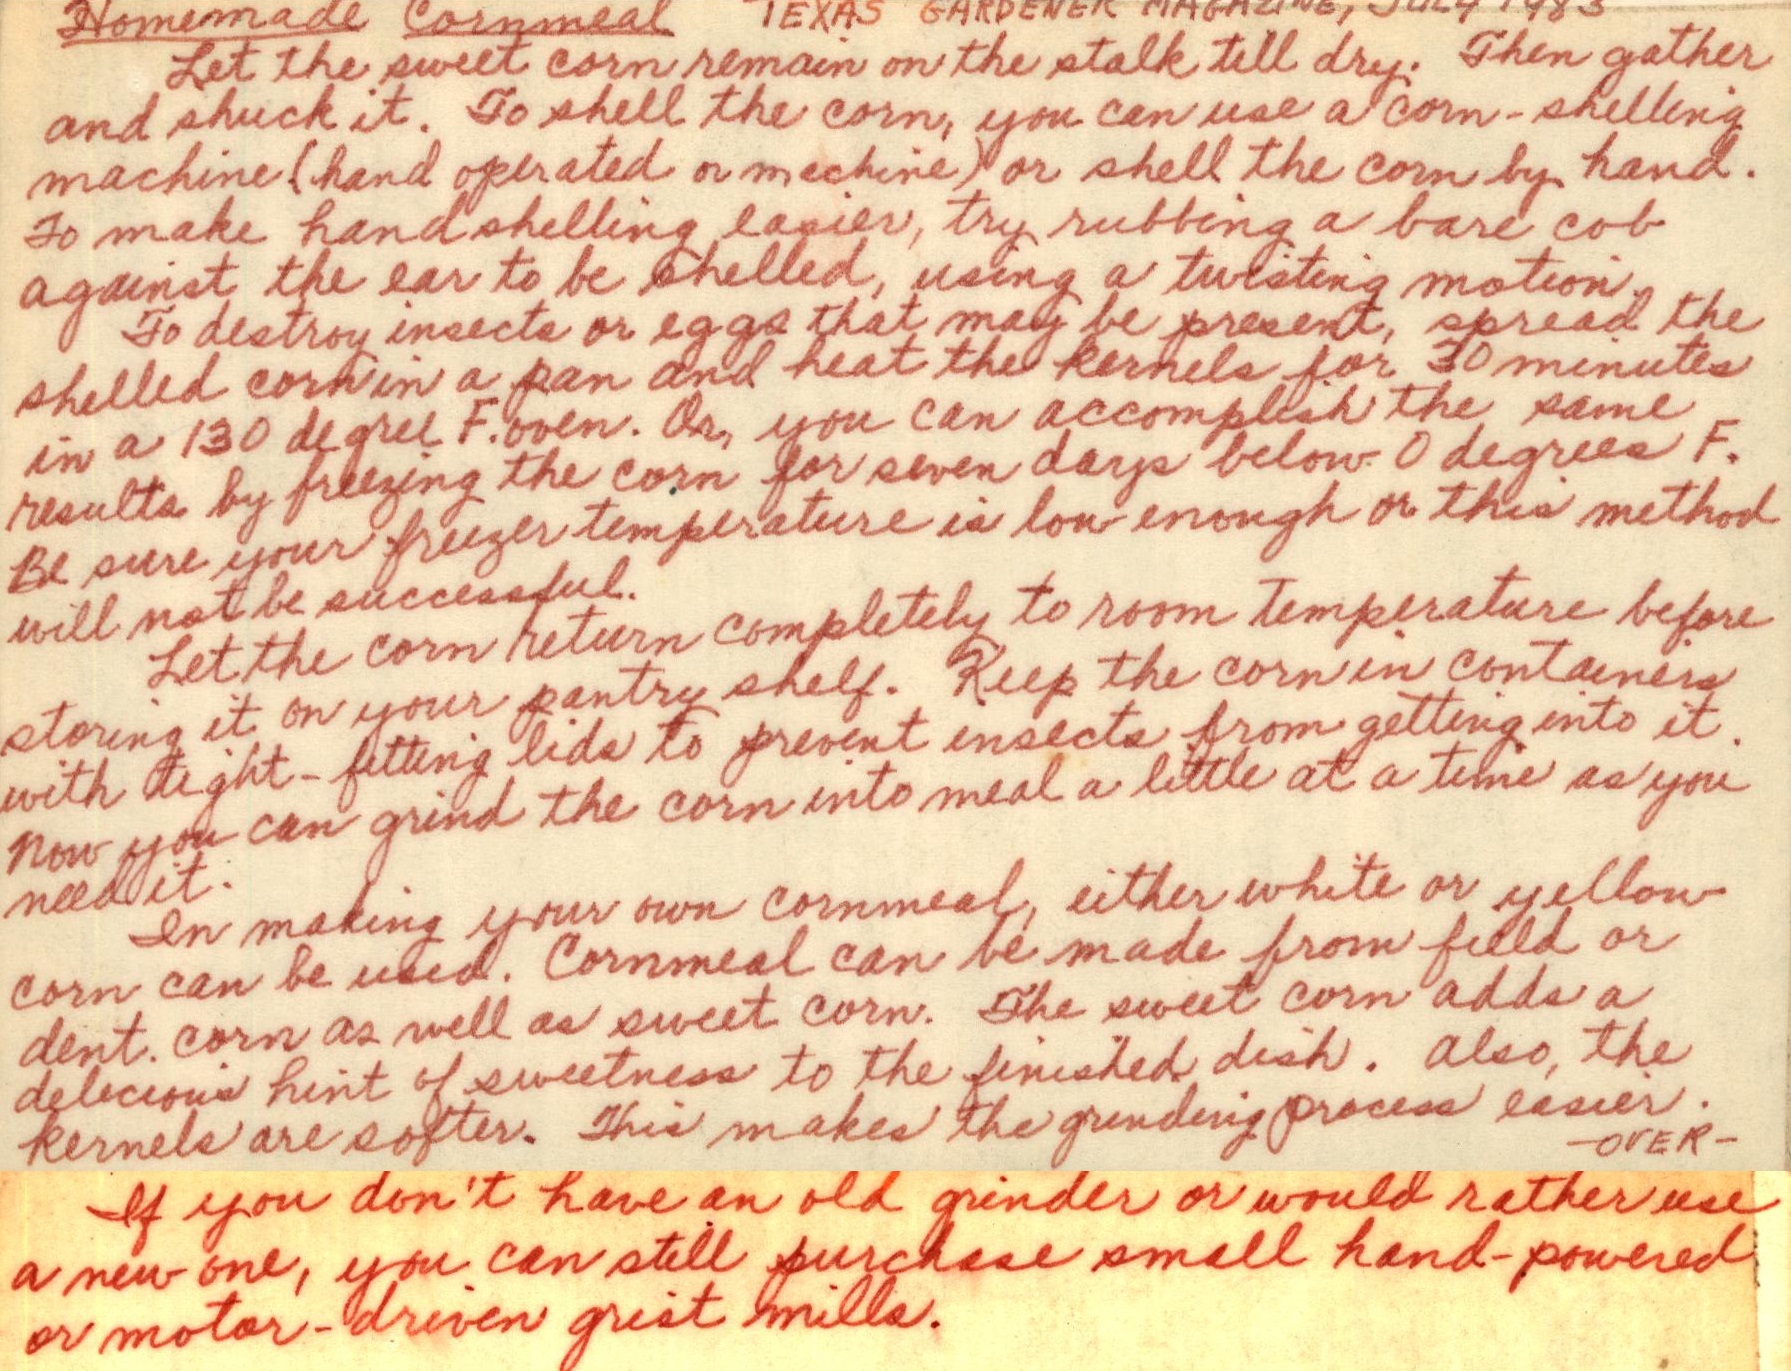 Homemade Cornmeal TEXAS GARDENER MAGAZINE, JULY 1983
Let the sweet corn remain on the stalk till dry. Then gather
and shuck it. To shell the corn, you can use a corn-shelling
machine (hand operated or machine) or shell the corn by hand.
To make hand shelling easier, try rubbing a bare cob
against the ear to be shelled, using a twisting motion.
To destroy insects or eggs that may be present, spread the
shelled corn in a pan and heat the kernels for 30 minutes
in a 130 degree F. oven. Or, you can accomplish the same
results by freezing the corn for seven days below 0 degrees F.
Be sure your freezer temperature is low enough or this method
will not be successful.
Let the corn return completely to room temperature before
storing it on your pantry shelf. Keep the corn in containers
with tight-fitting lids to prevent insects from getting into it.
Now you can grind the corn into meal a little at a time as you
need it.
In making your own cornmeal, either white or yellow
corn can be used. Cornmeal can be made from field or
dent. corn as well as sweet corn. The sweet corn adds a
delicious hint of sweetness to the finished dish. Also, the
kernels are softer. This makes the grinding process easier.
-OVER-
If you don't have an old grinder or would rather use
a new one, you can still purchase small hand-powered
or motor-driven grist mills.